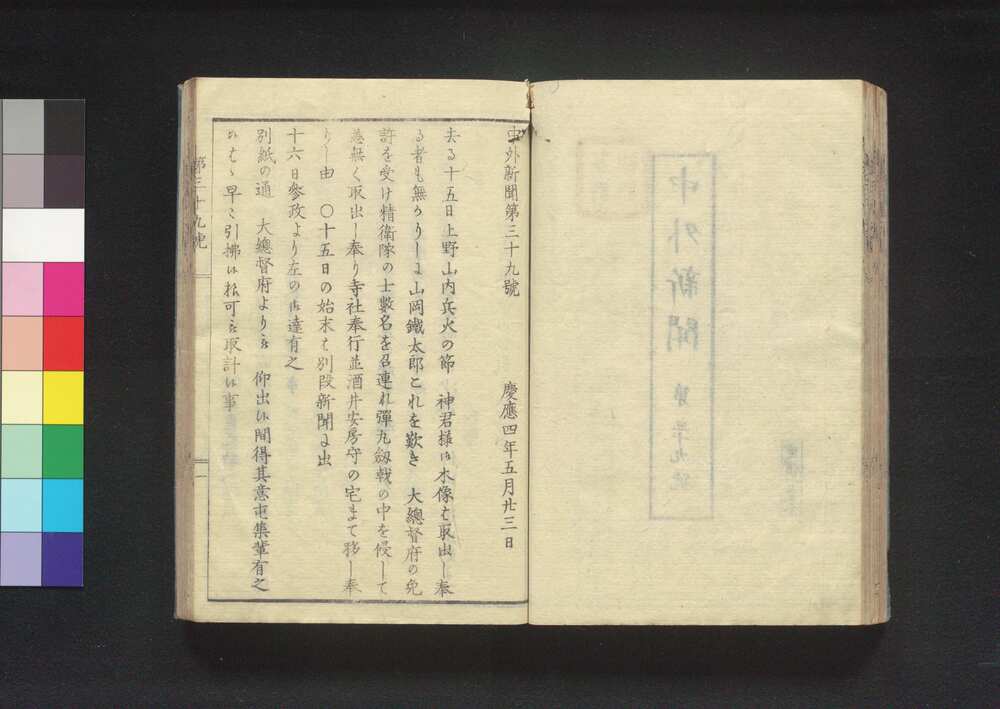 中外新聞第三十九號
慶應四年五月廿三日
去る十五日上野山内兵火の節 神君樣御木像を取出し奉
る者も無かりしに山岡鐵太郎これを歎き 大總督府の免
許を受け精衛隊の士數名を召連れ彈丸劔戟の中を侵して
恙無く取出し奉り寺社奉行並酒井安房守の宅まて移し奉
りし由 ○十五日の始末は別段新聞に出
十六日參政より左の御達有之
別紙の通 大總督府より被 仰出候間得其意屯集輩有之
候はゝ早々引拂候樣可被取計候事
第三十九號
一
中外新聞 第卅九號